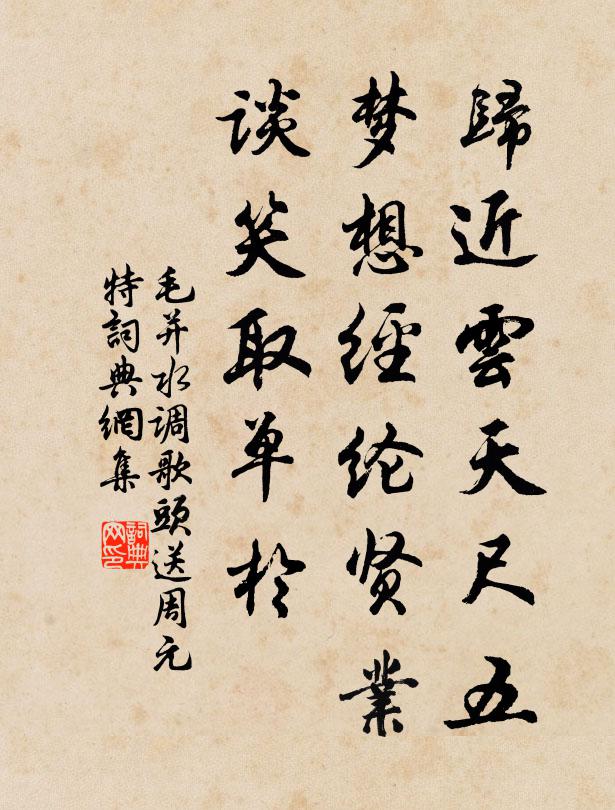 歸近雲天尺五
梦想經纶贤業
谈笑取单於
毛并水调歌頭送周元
特詞典網集
詞典
网印